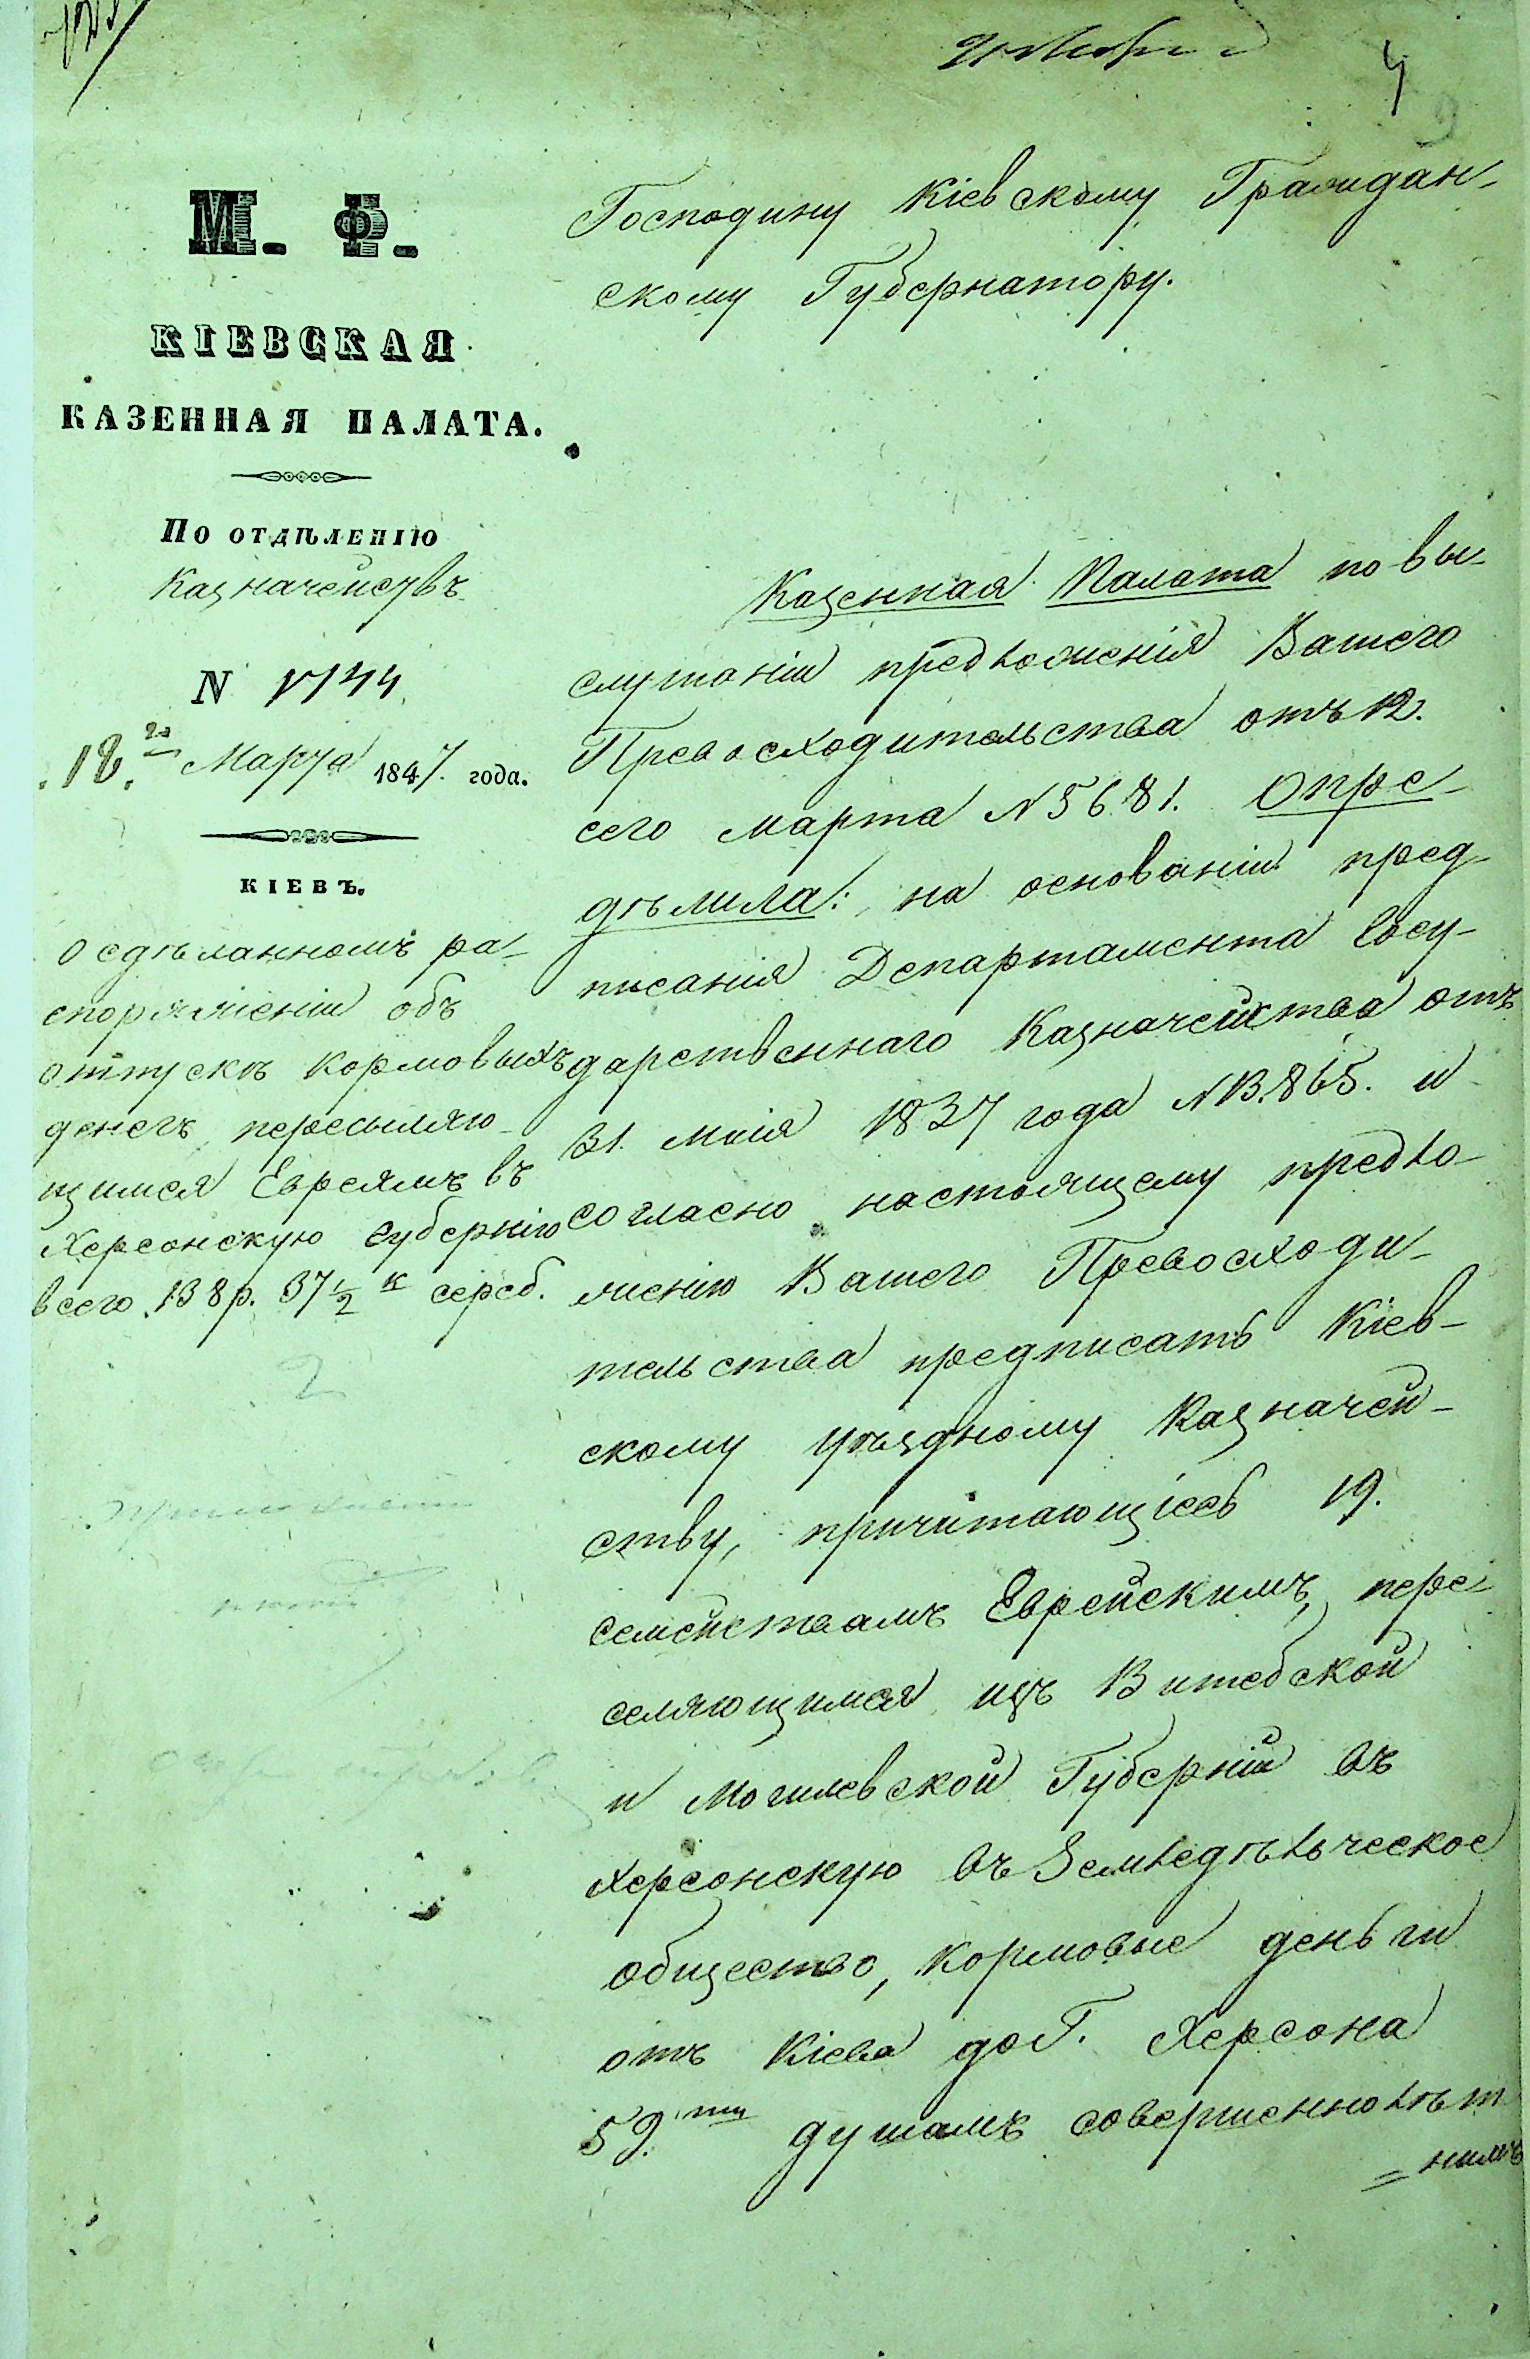 4
М. Ф.
КІЕВСКАЯ
КАЗЕННАЯ ПАЛАТА.
По отдѣленію
Казначействъ
N 1744
18.го Марта 1847. года.
КІЕВЪ.
о сдѣланномъ ра-
споряженіи объ
отпускѣ кормовыхъ
денегъ пересыляю-
щимся Евреямъ въ
Херсонскую губернію
всего 138 р. 37 1/2 к сереб.
2
Господину Кіевскому Граждан-
скому Губернатору.
Казенная Палата по вы-
слушаніи предложенія Вашего
Превосходительства отъ 12.
сего марта N 5681. Опре-
дѣлила: на основаніи пред-
писанія Департамента Госу-
дарственнаго Казначейства отъ
31. маія 1837 года N 13.865. и
согласно настоящему предло-
женію Вашего Превосходи-
тельства предписать Кіев-
скому уѣздному Казначей-
ству, причитающіесь 19.
семействамъ Еврейскимъ, пере-
селяющимся изъ Витебской
и Могилевской Губерній въ
Херсонскую въ Земледѣльческое
общество, кормовые деньги
отъ Кіева до Г. Херсона
59.ти душамъ совершеннолѣт
=нимъ